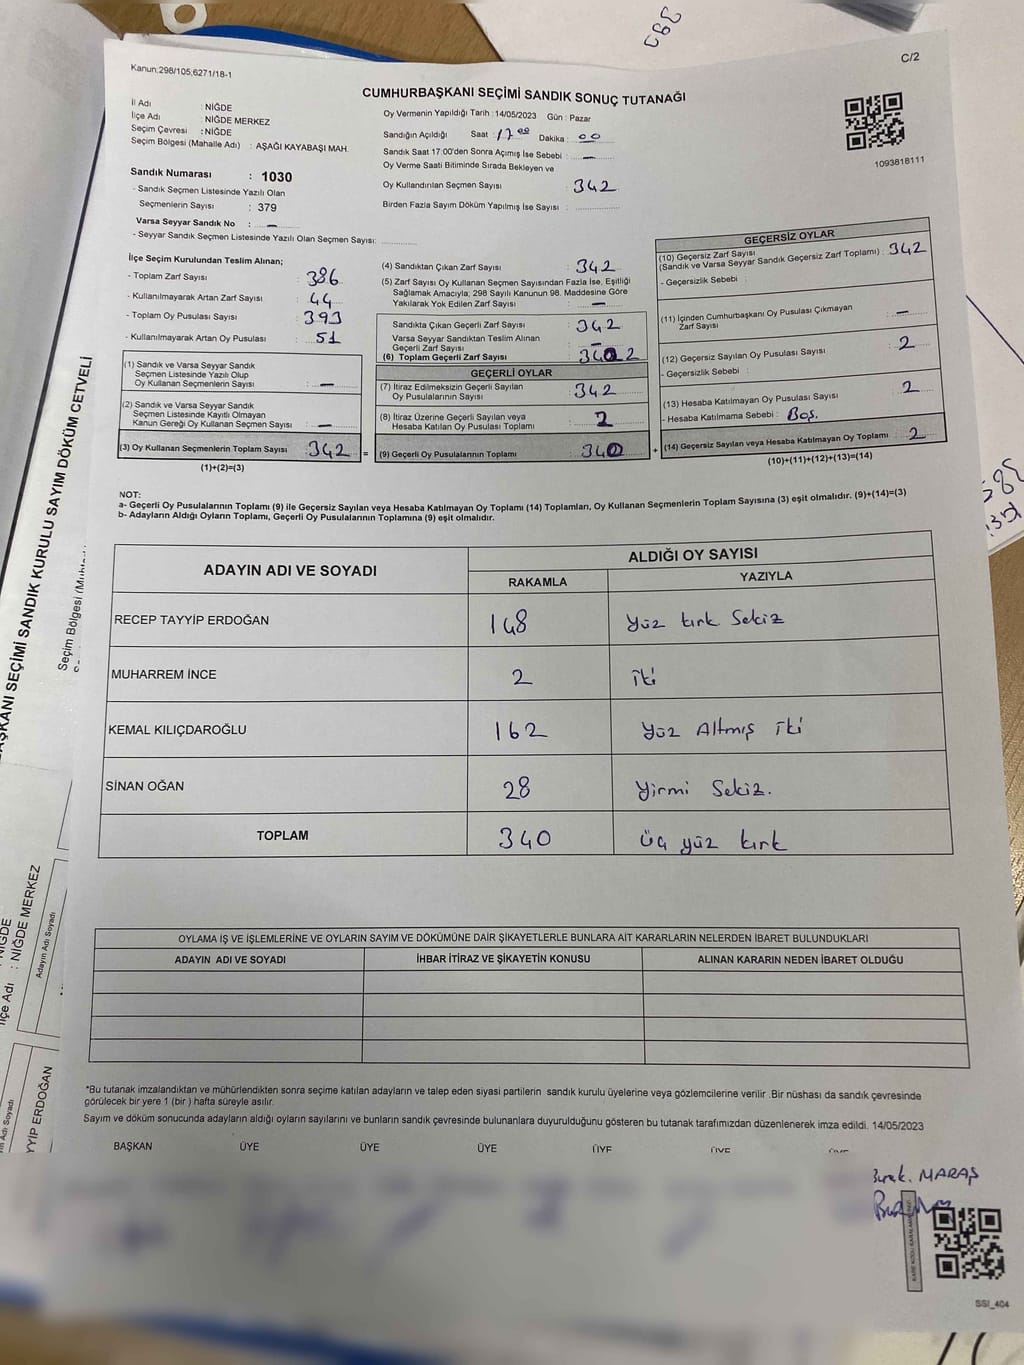 C/2
Kanun;298/105;6271/18-1
CUMHURBAŞKANI SEÇİMİ SANDIK SONUÇ TUTANAĞI
İl Adı : NİĞDE
İlçe Adı : NİĞDE MERKEZ
Seçim Çevresi : NİĞDE
Seçim Bölgesi (Mahalle Adı) : AŞAĞI KAYABAŞI MAH.
Oy Vermenin Yapıldığı Tarih : 14/05/2023 Gün : Pazar
Sandığın Açıldığı Saat : 17 00 Dakika : 00
Sandık Saat 17:00'den Sonra Açımış İse Sebebi : —
Oy Verme Saati Bitiminde Sırada Bekleyen ve
Oy Kullandırılan Seçmen Sayısı : 342
Birden Fazla Sayım Döküm Yapılmış İse Sayısı :
1093818111
Sandık Numarası : 1030
- Sandık Seçmen Listesinde Yazılı Olan
Seçmenlerin Sayısı : 379
Varsa Seyyar Sandık No : —
- Seyyar Sandık Seçmen Listesinde Yazılı Olan Seçmen Sayısı:
İlçe Seçim Kurulundan Teslim Alınan;
- Toplam Zarf Sayısı : 386
- Kullanılmayarak Artan Zarf Sayısı : 44
- Toplam Oy Pusulası Sayısı : 393
- Kullanılmayarak Artan Oy Pusulası : 51
(1) Sandık ve Varsa Seyyar Sandık
Seçmen Listesinde Yazılı Olup
Oy Kullanan Seçmenlerin Sayısı : —
(2) Sandık ve Varsa Seyyar Sandık
Seçmen Listesinde Kayıtlı Olmayan
Kanun Gereği Oy Kullanan Seçmen Sayısı : —
(3) Oy Kullanan Seçmenlerin Toplam Sayısı : 342 =
(1)+(2)=(3)
(4) Sandıktan Çıkan Zarf Sayısı : 342
(5) Zarf Sayısı Oy Kullanan Seçmen Sayısından Fazla İse, Eşitliği
Sağlamak Amacıyla; 298 Sayılı Kanunun 98. Maddesine Göre
Yakılarak Yok Edilen Zarf Sayısı : —
Sandıkta Çıkan Geçerli Zarf Sayısı : 342
Varsa Seyyar Sandıktan Teslim Alınan
Geçerli Zarf Sayısı : —
(6) Toplam Geçerli Zarf Sayısı : 340 2
GEÇERLİ OYLAR
(7) İtiraz Edilmeksizin Geçerli Sayılan
Oy Pusulalarının Sayısı : 342
(8) İtiraz Üzerine Geçerli Sayılan veya
Hesaba Katılan Oy Pusulası Toplamı : 2
(9) Geçerli Oy Pusulalarının Toplamı : 340 +
GEÇERSİZ OYLAR
(10) Geçersiz Zarf Sayısı
(Sandık ve Varsa Seyyar Sandık Geçersiz Zarf Toplamı) : 342
- Geçersizlik Sebebi :
(11) İçinden Cumhurbaşkanı Oy Pusulası Çıkmayan
Zarf Sayısı : —
(12) Geçersiz Sayılan Oy Pusulası Sayısı : 2
- Geçersizlik Sebebi :
(13) Hesaba Katılmayan Oy Pusulası Sayısı : 2
- Hesaba Katılmama Sebebi : Boş.
(14) Geçersiz Sayılan veya Hesaba Katılmayan Oy Toplamı : 2
(10)+(11)+(12)+(13)=(14)
NOT:
a- Geçerli Oy Pusulalarının Toplamı (9) ile Geçersiz Sayılan veya Hesaba Katılmayan Oy Toplamı (14) Toplamları, Oy Kullanan Seçmenlerin Toplam Sayısına (3) eşit olmalıdır. (9)+(14)=(3)
b- Adayların Aldığı Oyların Toplamı, Geçerli Oy Pusulalarının Toplamına (9) eşit olmalıdır.
ADAYIN ADI VE SOYADI
ALDIĞI OY SAYISI
RAKAMLA YAZIYLA
RECEP TAYYİP ERDOĞAN 148 Yüz kırk Sekiz
MUHARREM İNCE 2 iki
KEMAL KILIÇDAROĞLU 162 Yüz Altmış iki
SİNAN OĞAN 28 Yirmi Sekiz.
TOPLAM 340 üç yüz kırk
OYLAMA İŞ VE İŞLEMLERİNE VE OYLARIN SAYIM VE DÖKÜMÜNE DAİR ŞİKAYETLERLE BUNLARA AİT KARARLARIN NELERDEN İBARET BULUNDUKLARI
ADAYIN ADI VE SOYADI İHBAR İTİRAZ VE ŞİKAYETİN KONUSU ALINAN KARARIN NEDEN İBARET OLDUĞU
*Bu tutanak imzalandıktan ve mühürlendikten sonra seçime katılan adayların ve talep eden siyasi partilerin sandık kurulu üyelerine veya gözlemcilerine verilir .Bir nüshası da sandık çevresinde
görülecek bir yere 1 (bir ) hafta süreyle asılır.
Sayım ve döküm sonucunda adayların aldığı oyların sayılarını ve bunların sandık çevresinde bulunanlara duyurulduğunu gösteren bu tutanak tarafımızdan düzenlenerek imza edildi. 14/05/2023
BAŞKAN ÜYE ÜYE ÜYE ÜYE ÜYE ÜYE
Burak. MARAŞ
SSI_404
383
AŞKANI SEÇİMİ SANDIK KURULU SAYIM DÖKÜM CETVELİ
Seçim Bölgesi
NİĞDE
İlçe Adı : NİĞDE MERKEZ
Adayın Adı Soyadı
YYİP ERDOĞAN